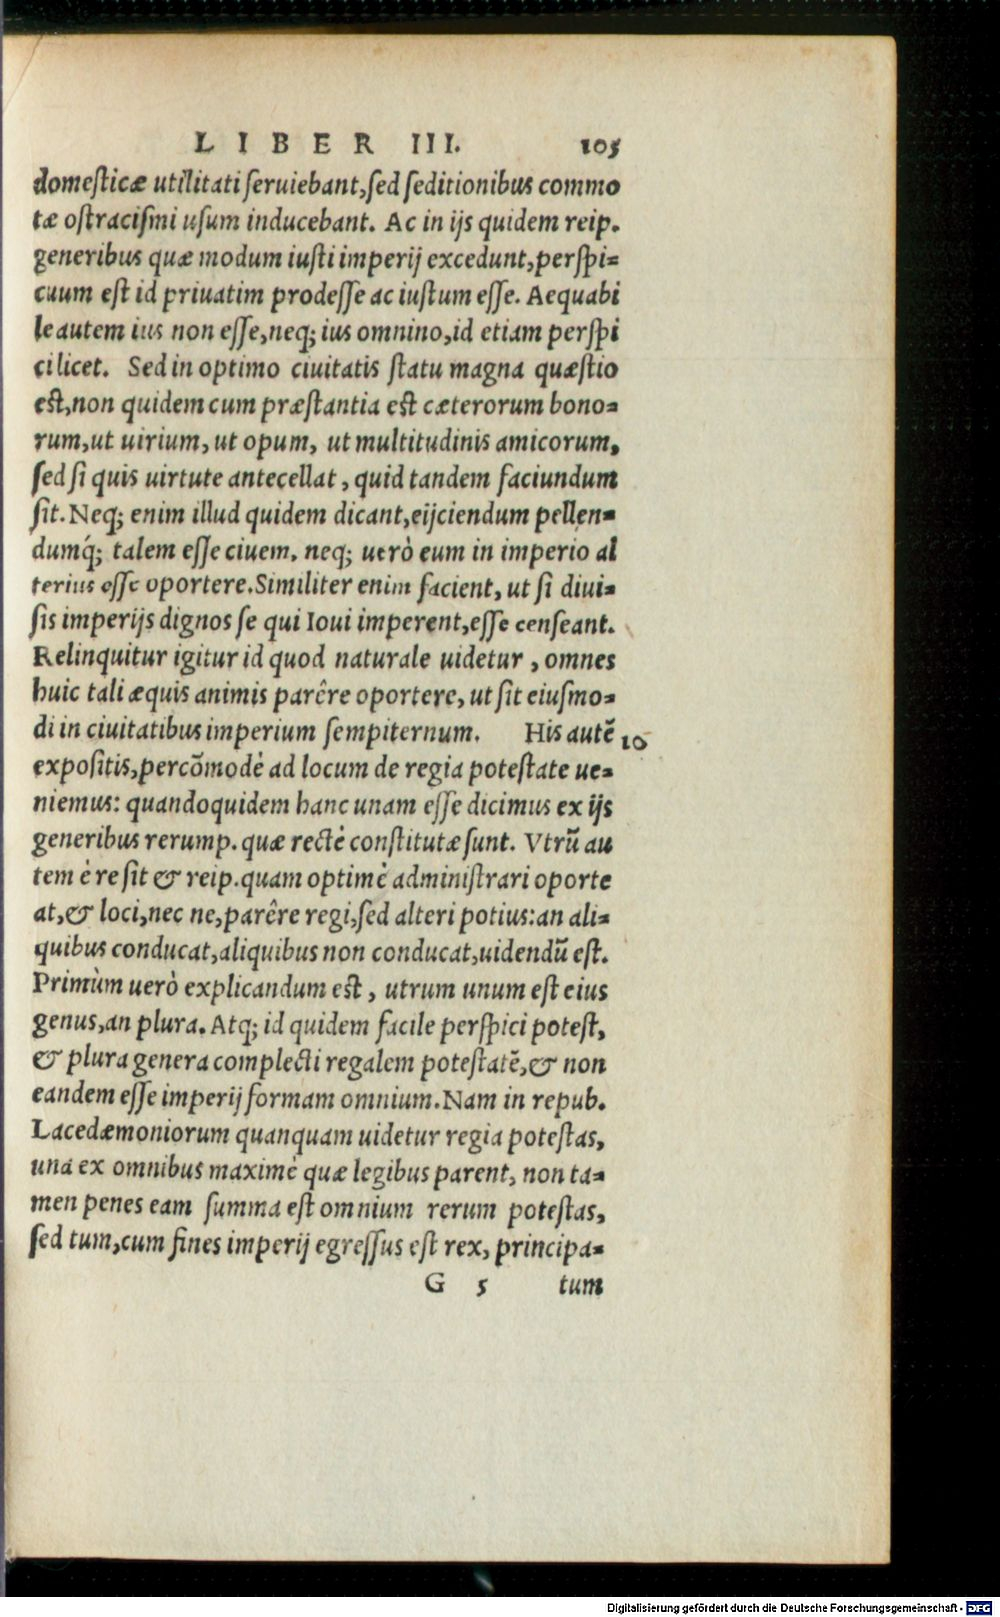 LIBER III. 105
domesticæ utilitati seruiebant, sed seditionibus commo
tæ ostracismi usum inducebant. Ac in ijs quidem reip.
generibus quæ modum iusti imperij excedunt, perspi=
cuum est id priuatim prodesse ac iustum esse. Aequabi
le autem ius non esse, neq; ius omnino, id etiam perspi
ci licet. Sed in optimo ciuitatis statu magna quæstio
est, non quidem cum præstantia est cæterorum bono=
rum, ut uirium, ut opum, ut multitudinis amicorum,
sed si quis uirtute antecellat, quid tandem faciundum
sit. Neq; enim illud quidem dicant, eijciendum pellen=
dumq́; talem esse ciuem, neq; uerò eum in imperio al
terius esse oportere. Similiter enim facient, ut si diui=
sis imperijs dignos se qui Ioui imperent, esse censeant.
Relinquitur igitur id quod naturale uidetur, omnes
huic tali æquis animis parêre oportere, ut sit eiusmo=
di in ciuitatibus imperium sempiternum. His autē 10
expositis, percõmodè ad locum de regia potestate ue=
niemus: quandoquidem hanc unam esse dicimus ex ijs
generibus rerump. quæ rectè constitutæ sunt. Vtrũ au
tem è re sit & reip. quam optimè administrari oporte
at, & loci, nec ne, parêre regi, sed alteri potius: an ali=
quibus conducat, aliquibus non conducat, uidendũ est.
Primùm uerò explicandum est, utrum unum est eius
genus, an plura. Atq; id quidem facile perspici potest,
& plura genera complecti regalem potestatē, & non
eandem esse imperij formam omnium. Nam in repub.
Lacedæmoniorum quanquam uidetur regia potestas,
una ex omnibus maximè quæ legibus parent, non ta=
men penes eam summa est omnium rerum potestas,
sed tum, cum fines imperij egressus est rex, principa=
G 5 tum
Digitalisierung gefördert durch die Deutsche Forschungsgemeinschaft - DFG